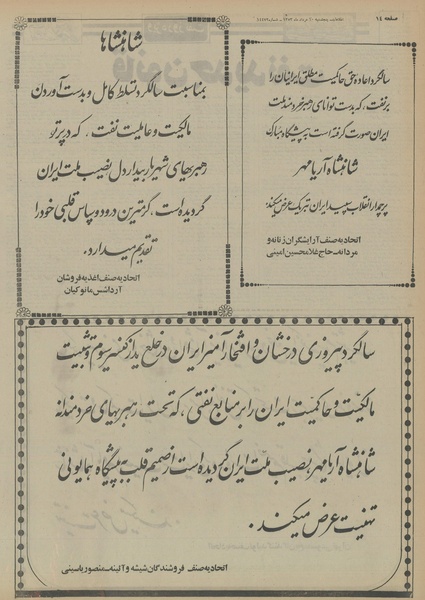 صفحه ۱۴
سالگرد اعاده حق حاکمیت مطلق ایرانیان را
بر نفت، که بدست توانای رهبر خردمند ملت
ایران صورت گرفته است به پیشگاه مبارک
شاهنشاه آریامهر
پرچمدار انقلاب سپید ایران تبریک عرض میکند.
اتحادیه صنف آرایشگران زنانه و
مردانه - حاج غلامحسین امینی
شاهنشاها
بمناسبت سالگرد تسلط کامل و بدست آوردن
مالکیت و حاکمیت نفت، که در پرتو
رهبریهای شهریار بیدار دل نصیب ملت ایران
گردیده است، گرمترین درود و سپاس قلبی خود را
تقدیم میدارد.
اتحادیه صنف اغذیه فروشان
آرداشس مانوکیان
سالگرد پیروزی درخشان و افتخارآمیز ایران در خلع ید از کنسرسیوم و تثبیت
مالکیت و حاکمیت ایران را بر منابع نفتی، که تحت رهبریهای خردمندانه
شاهنشاه آریامهر نصیب ملت ایران گردیده است از صمیم قلب به پیشگاه همایونی
تهنیت عرض میکند.
اتحادیه صنف فروشندگان شیشه و آئینه - منصور یاسینی